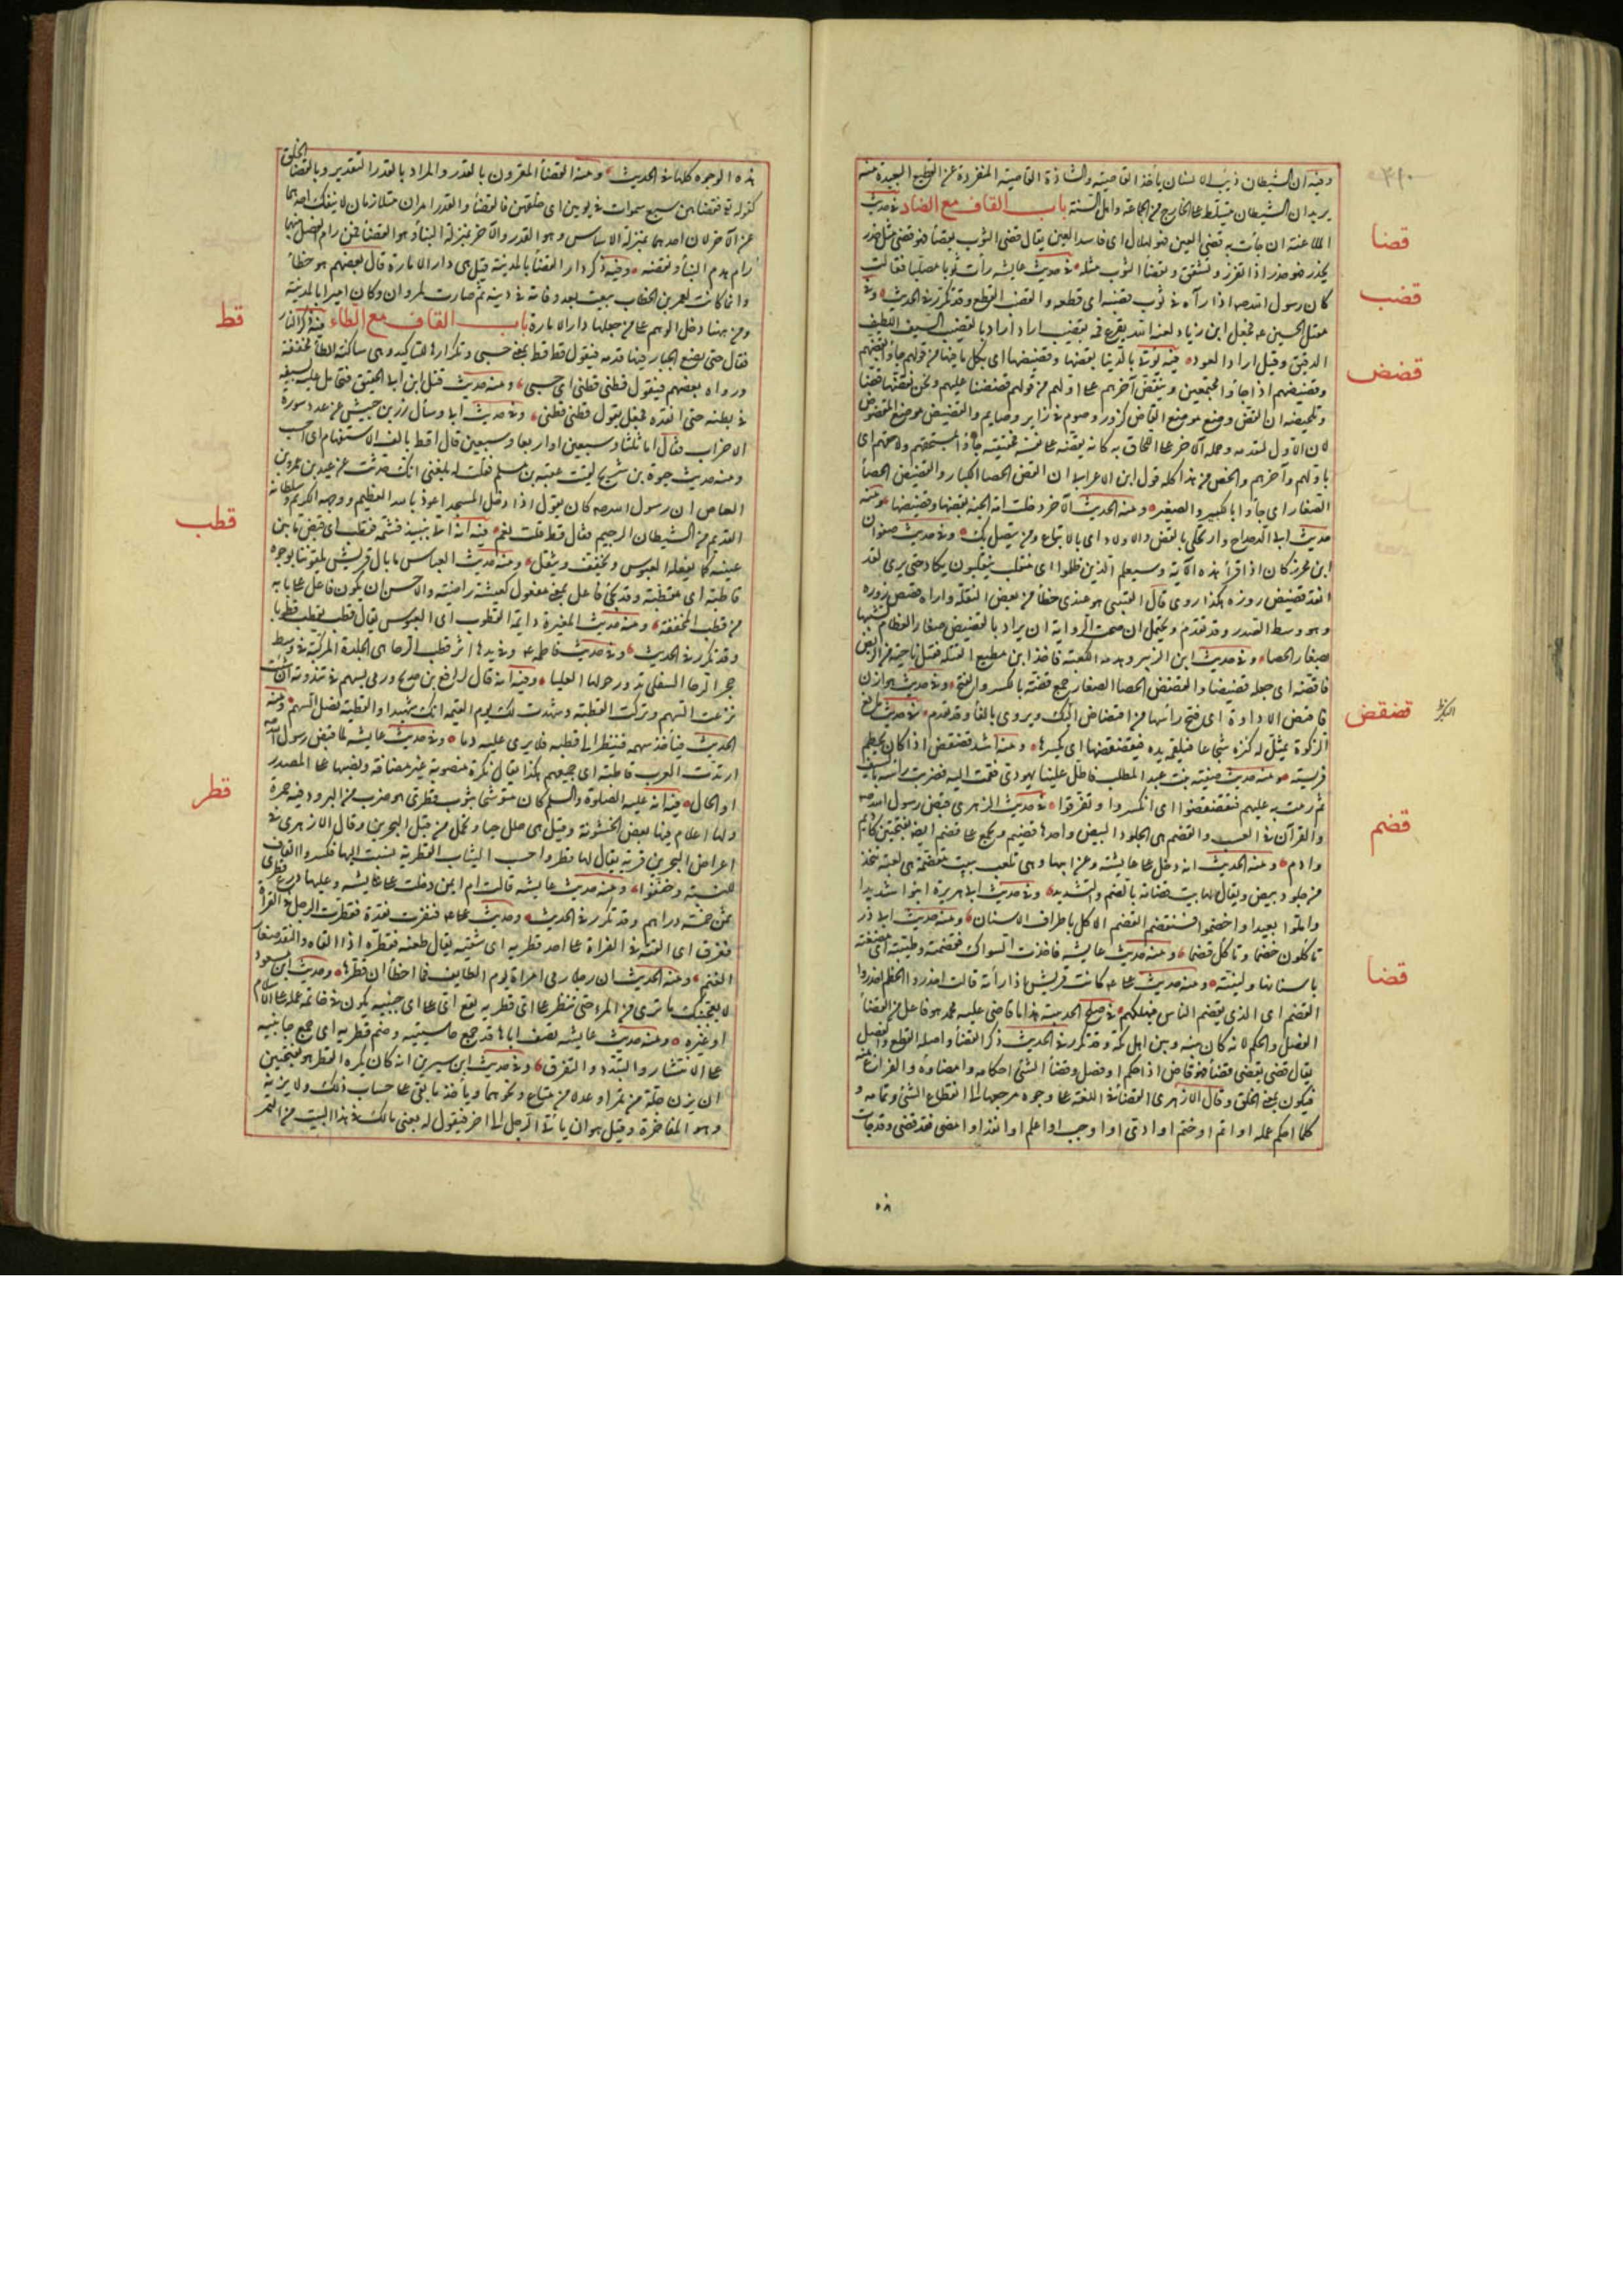 ٣٩٠
ومنه ان الشيطان ذئب الانسان يأخذ القاصية والشاذة القاصية المنفردة عن القطيع البعيدة منه
يريد ان الشيطان يتسلط على الخارج من الجماعة واهل السنة باب القاف مع الضاد في حديث
قضا
الملاعنة ان جأت به قضئ العين فهو لهلال اى فاسد العين يقال قضئ الثوب يقضأ فهو قضئ مثل حذر
يحذر فهو حذر اذا تفزر وتشقق وتقضأ الثوب مثله في حديث عايشه رأت ثوبا مصلبا فقالت
قضب
كان رسول الله صه اذا رآه في ثوب قضبه اى قطعه والقضب القطع وقد تكرر في الحديث وفي
مقتل الحسين عه فجعل ابن زياد لعنه الله يقرع فمه بقضيب اراد اراد بالقضيب السيف اللطيف
الدقيق وقيل اراد العود فيه يؤتى بالدنيا بقضها وقضيضها اى بكل ما فيها من قولهم جاؤا بقضهم
قضض
وقضيضهم اذا جاؤا مجتمعين وينقض آخرهم على اولهم من قولهم قضضنا عليهم ونحن نقضها قضا
وتلخيصه ان القض وضع موضع القاض كزور وصوم في زاير وصايم والقضيض موضع المقضوض
لان الاول لتقدمه وحمله الآخر على اللحاق به كانه يقضه على نفسه فحقيقته جاؤا بمستلحقهم ولاحقهم اى
باولهم وآخرهم والخص من هذا كله قول ابن الاعرابى ان القض الحصا الكبار والقضيض الحصا
الصغار اى جاؤا بالكبير والصغير ومنه الحديث الآخر دخلت الجنة بقضها وقضيضها ومنه
حديث ابى الدحداح وارتحلى بالقض والاولاد اى بالاتباع ومن يتصل بك وفي حديث صفوان
ابن محرز كان اذا قرأ هذه الآية وسيعلم الذين ظلموا اى منقلب ينقلبون بكا حتى يرى لقد
انقد قضيض زوره هكذا روى قال القتيبى هو عندى خطأ من بعض النقلة واراه قصص زوره
وهو وسط الصدر وقد تقدم ويحتمل ان صحت الرواية ان يراد بالقضيض صغار العظام تشبيها
بصغار الحصا وفي حديث ابن الزبير وهدم الكعبة فاخذ ابن مطيع العتلة فعتل ناحية من الربض
فاقضه اى جعله قضضا والقضض الحصا الصغار جمع قضة بالكسر والفتح وفي حديث هوازن
فاقتض الاداوة اى فتح رأسها من اقتضاض البكر ويروى بالفأ وقد تقدم في حديث مانع
قضقض
الزكوة يمثل له كنزه شجاعا فيلقمه يده فيقضقضها اى يكسرها ومنه اسد قضقاض اذا كان يحطم
فريسته ومنه حديث صفية بنت عبد المطلب فاطل علينا يهودى فقمت اليه فضربت راسه بالسيف
ثم رميت به عليهم فتقضقضوا اى انكسروا وتفرقوا في حديث الزهرى قبض رسول الله صه
قضم
والقرآن في العسب والقضم هى الجلود البيض واحدها قضيم ويجمع على قضم ايضا بفتحتين كاديم
وادم ومنه الحديث انه دخل على عايشة وهى تلعب ببنت مقضمة هى لعبة تتخذ
من جلود بيض ويقال لها بنت قضامة بالضم والتشديد وفي حديث ابى هريرة ابنوا شديدا
واملوا بعيدا واخضموا فسنقضم القضم الاكل باطراف الاسنان ومنه حديث ابى ذر
تأكلون خضما ونأكل قضما ومنه حديث عايشه فاخذت السواك فقضمته وطيبته اى مضغته
باسنانها ولينته ومنه حديث على عه كانت قريش اذا رأته قالت احذروا الحطم احذروا
قضا
القضم اى الذى يقضم الناس فيهلكهم في صلح الحديبية هذا ما قاضى عليه محمد هو فاعل من القضأ
الفصل والحكم لانه كان بينه وبين اهل مكة وقد تكرر في الحديث ذكر القضأ واصله القطع والفصل
يقال قضى يقضى قضأ فهو قاض اذا حكم وفصل وقضأ الشئ احكامه وامضاؤه والفراغ منه
فيكون بمعنى الخلق وقال الازهرى القضأ في اللغة على وجوه مرجعها الى انقطاع الشئ وتمامه و
كلما احكم عمله او اتم او ختم او ادى او اوجب او اعلم او انفذ او امضى فقد قضى وقد جأت
هذه الوجوه كلها في الحديث ومنه القضأ المقرون بالقدر والمراد بالقدر التقدير وبالقضأ الخلق
كقوله تع فقضاهن سبع سموات في يومين اى خلقهن فالقضأ والقدر امران متلازمان لا ينفك احدهما
عن الآخر لان احدهما بمنزلة الاساس وهو القدر والآخر بمنزلة البنأ وهو القضأ فمن رام الفصل بينهما
رام هدم البنأ ونقضه وفيه ذكر دار القضأ بالمدينة قيل هى دار الامارة قال بعضهم هو خطأ
وانما كانت لعمر بن الخطاب بيعت بعد وفاته في دينه ثم صارت لمروان وكان اميرا بالمدينة
ومن ههنا دخل الوهم على من جعلها دار الامارة باب القاف مع الطاء فيه ذكر النار
قط
فقال حتى يضع الجبار فيها قدمه فيقول قط قط بمعنى حسبى وتكرارها للتاكيد وهى ساكنة الطأ مخففة
ورواه بعضهم فيقول قطنى قطنى اى حسبى ومنه حديث قتل ابن ابى الحقيق فتحامل عليه بسيفه
في بطنه حتى انفذه فجعل يقول قطنى قطنى وفي حديث ابى وسأل زر بن حبيش عن عدد سورة
الاحزاب فقال اما ثلثا وسبعين او اربعا وسبعين قال اقط بالف الاستفهام اى احسب
ومنه حديث حيوة بن شريح لقيت عقبة بن مسلم فقلت له بلغنى انك حدثت عن عبد بن عمرو بن
العاص ان رسول الله صه كان يقول اذا دخل المسجد اعوذ بالله العظيم ووجهه الكريم وسلطانه
القديم من الشيطان الرجيم فقال قط قلت نعم فيه انه اتى بنبيذ فشمه فقطب اى قبض ما بين
قطب
عينيه كما يفعله العبوس ويخفف ويثقل ومنه حديث العباس ما بال قريش يلقوننا بوجوه
قاطبة اى مقطبة وقد يجئ فاعل بمعنى مفعول كعيشة راضية والاحسن ان يكون فاعل على بابه
من قطب المخففة ومنه حديث المغيرة دايمة القطوب اى العبوس يقال قطب يقطب قطوبا
وقد تكرر في الحديث وفي حديث فاطمه عه وفي يدها اثر قطب الرحا هى الحديدة المركبة في وسط
حجر الرحا السفلى تدور حولها العليا وفيه انه قال لرافع بن خديج ورمى بسهم في ثندوته ان شئت
نزعت السهم وتركت القطبة وشهدت لك يوم القيمة انك شهيد القطبة نصل السهم ومنه
الحديث فيأخذ سهمه فينظر الى قطبه فلا يرى عليه دما وفي حديث عايشه لما قبض رسول الله صه
ارتدت العرب قاطبة اى جميعهم هكذا يقال نكرة منصوبة غير مضافة ونصبها على المصدر
او الحال فيه انه عليه الصلوة والسلم كان متوشحا بثوب قطرى هو ضرب من البرود فيه حمرة
قطر
ولها اعلام فيها بعض الخشونة وقيل هى حلل جياد تحمل من قبل البحرين وقال الازهرى في
اعراض البحرين قرية يقال لها قطر واحسب الثياب القطرية نسبت اليها فكسروا القاف
للنسبة وخففوا ومنه حديث عايشه قالت ام ايمن دخلت على عايشه وعليها درع قطرى
ثمن خمسة دراهم وقد تكرر في الحديث وحديث على عه فنفرت نقدة فقطرت الرجل في الفرات
فغرق اى القته في الفرات على احد قطريه اى شقيه يقال طعنه فقطره اذا القاه والنقد صغار
الغنم ومنه الحديث ان رجلا رمى امرأة يوم الطايف فما اخطأ ان قطرها وحديث ابن مسعود
لا يعجبنك ما ترى من المرء حتى تنظر على اى قطريه يقع اى على اى جنبيه يكون في خاتمة عمله على الاسلام
او غيره ومنه حديث عايشه تصف اباها قد جمع حاشيتيه وضم قطريه اى جمع جانبيه
عن الانتشار والتبدد والتفرق وفي حديث ابن سيرين انه كان يكره القطر هو بفتحتين
ان يزن جلة من تمر او عدلا من متاع ونحوهما ويأخذ ما بقى على حساب ذلك ولا يزنه
وهو المقاطرة وقيل هو ان يأتى الرجل الى آخر فيقول له بعنى مالك في هذا البيت من التمر